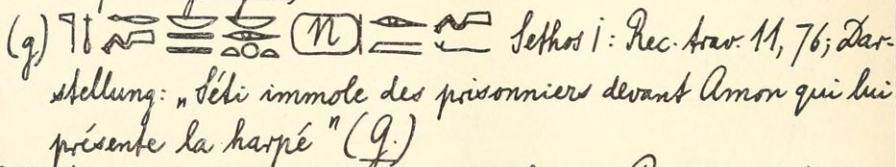 (g) Sethos I: Rec. trav. 11, 76; Dar-
stellung: „Séti immole des prisonniers devant Amon qui lui
présente la harpé" (G.)